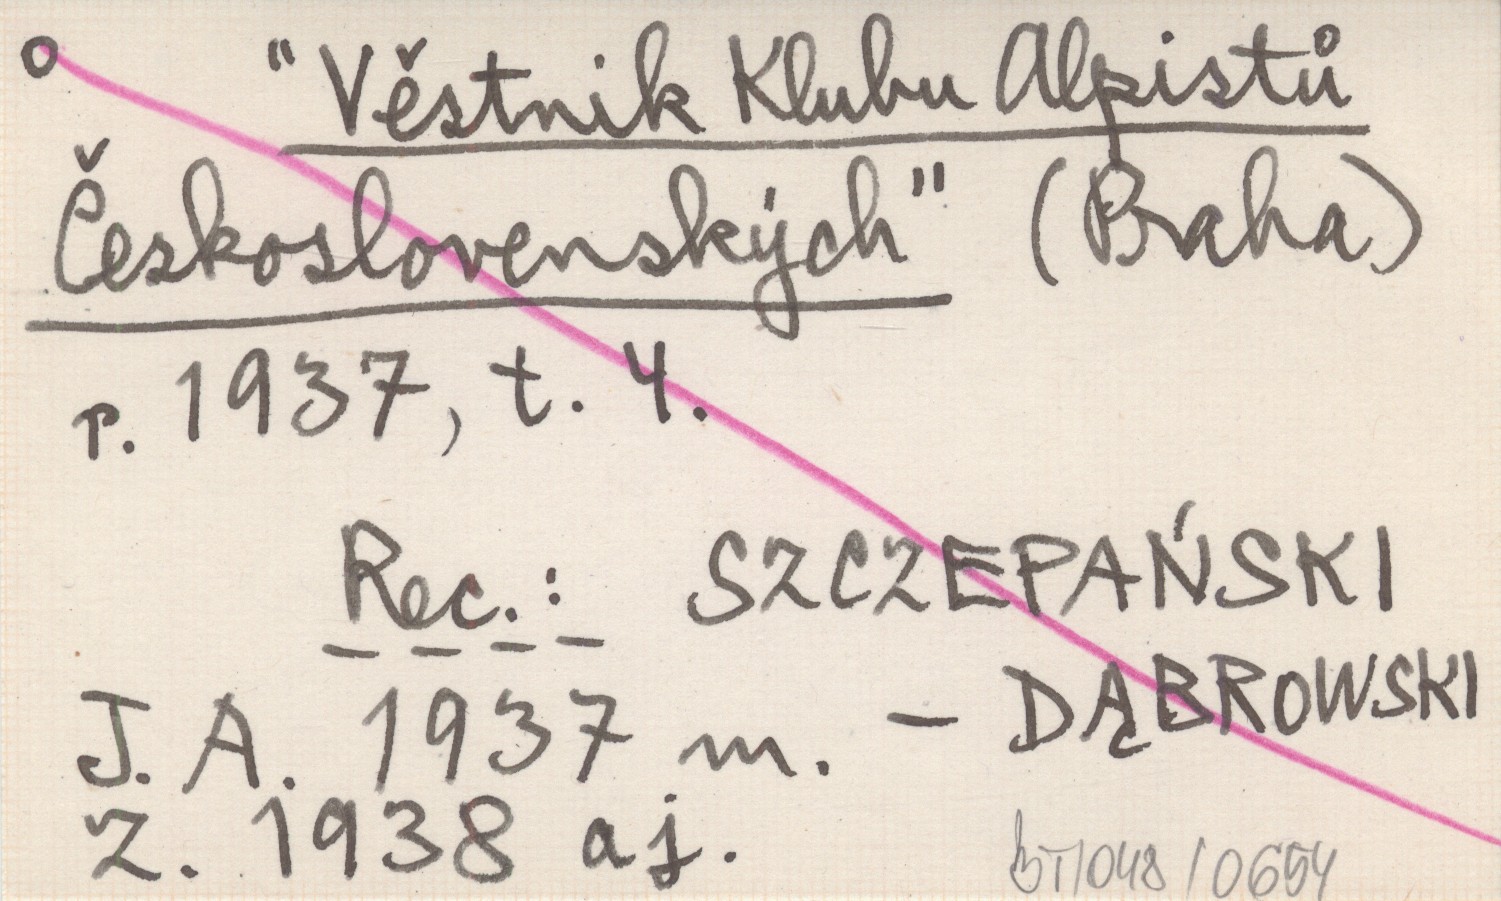 o "Věstnik Klubu Alpistů
Československých" (Praha)
r. 1937, t. 4.
Rec.: SZCZEPAŃSKI
J. A. 1937 m. – DĄBROWSKI
Z. 1938 aj.
BT/048/0654